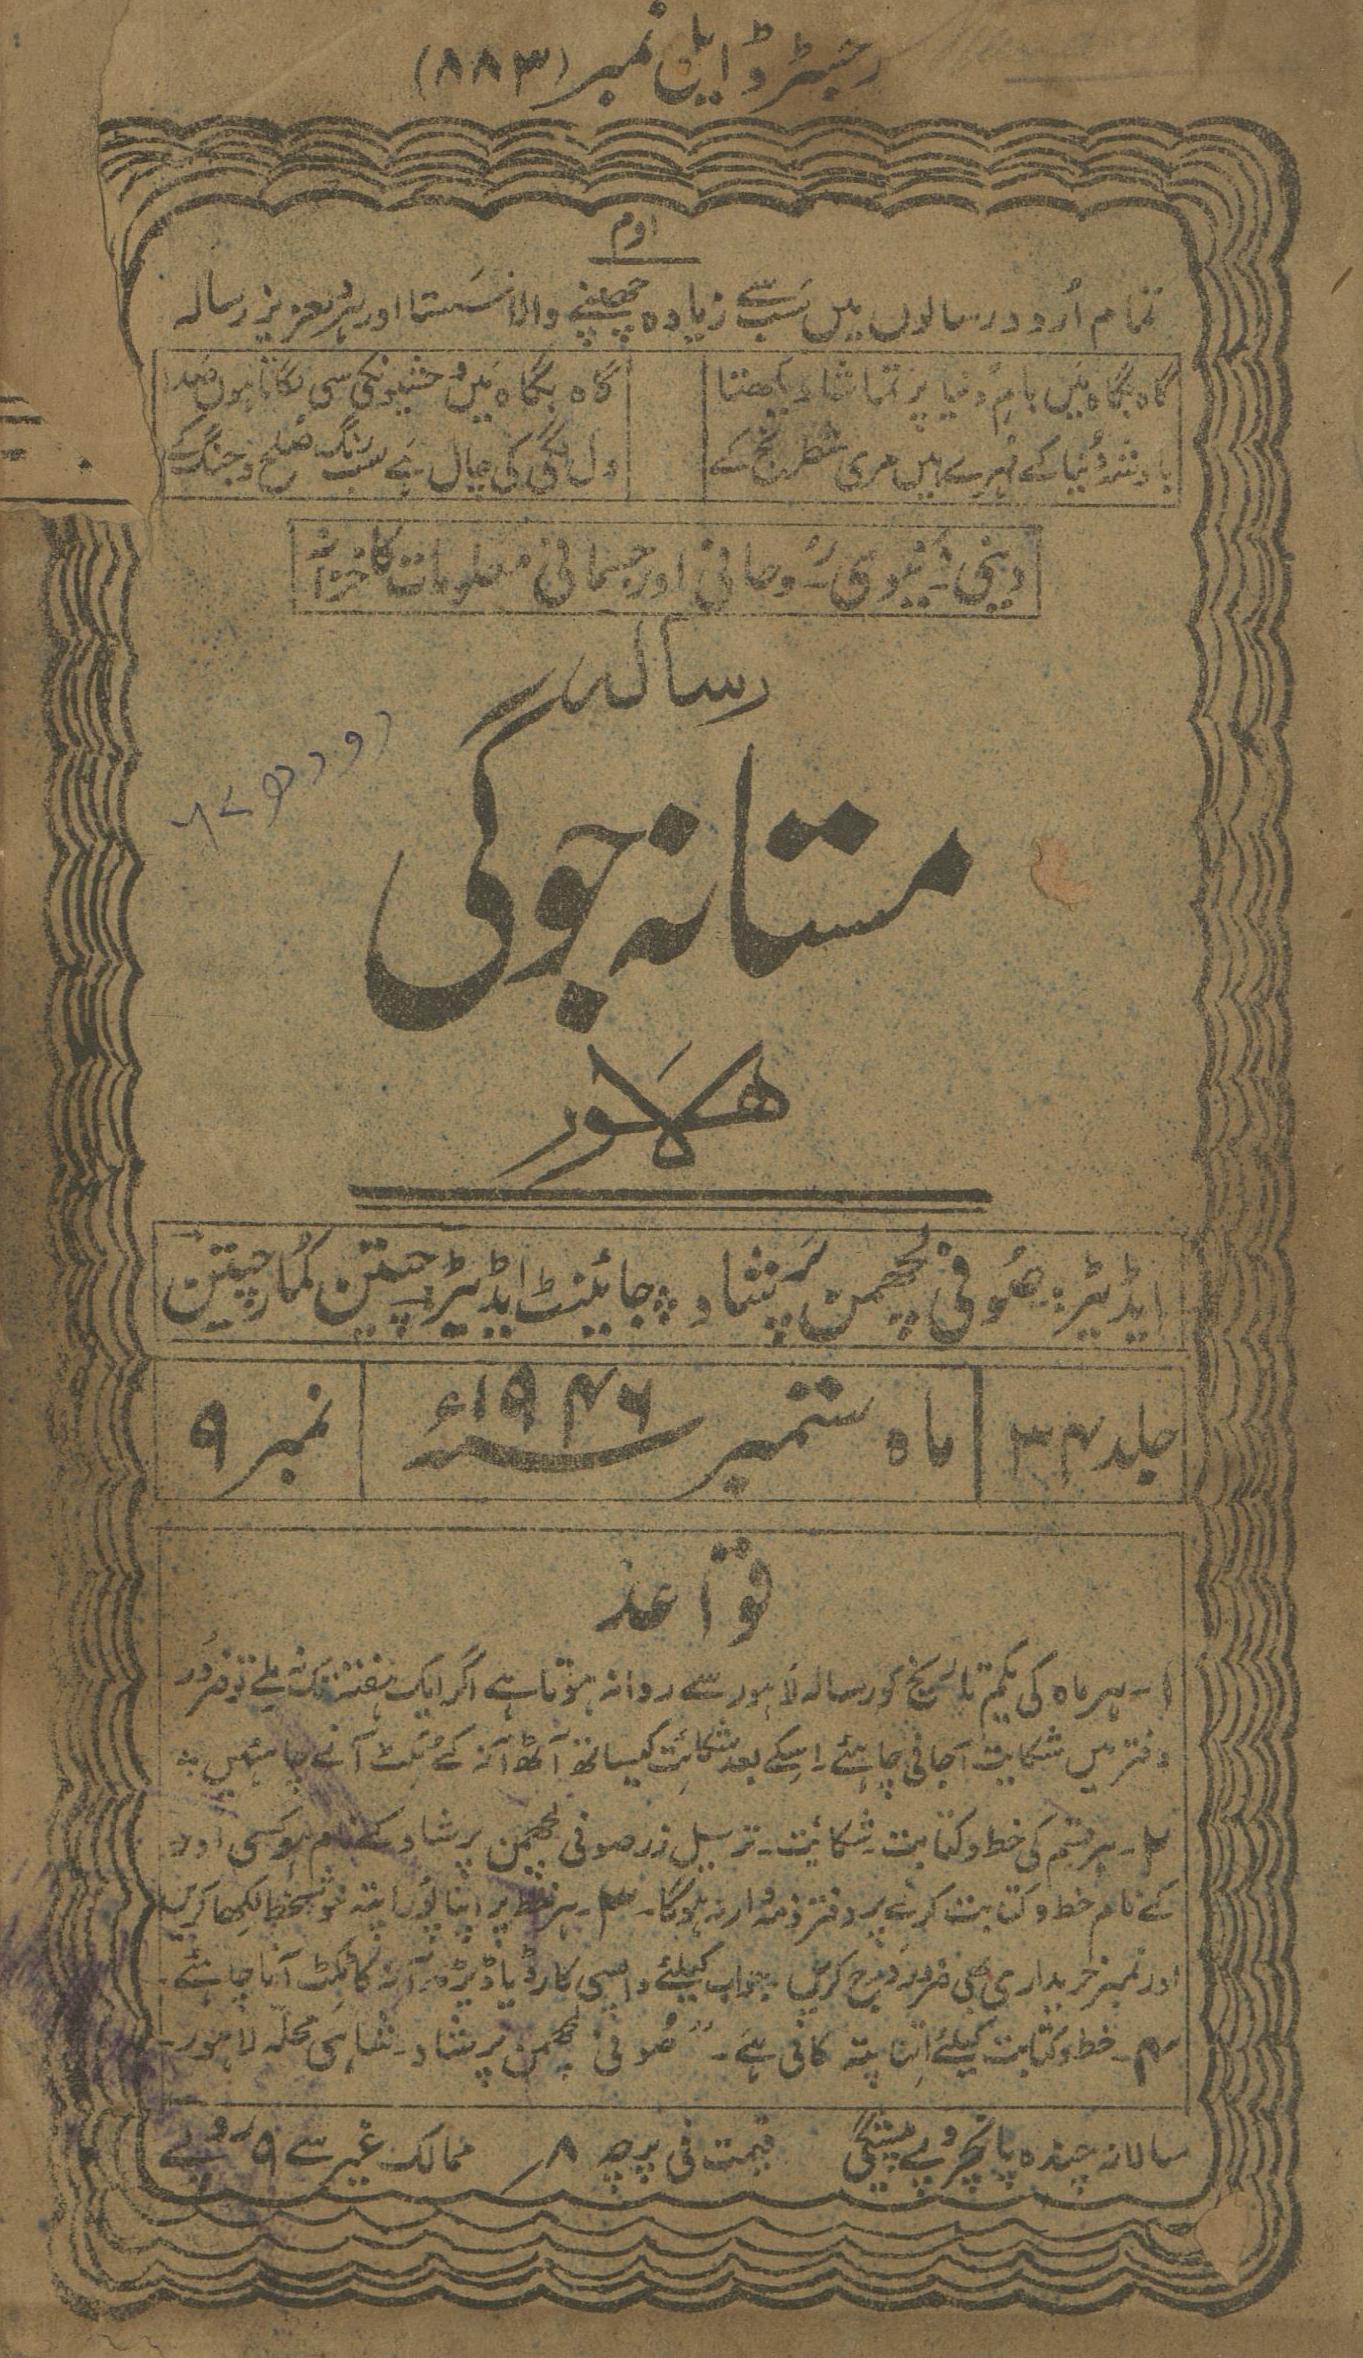 رجسٹرڈ ایل نمبر (۸۸۳)
اوم
تمام اُردو رسالوں میں سَب سے زیادہ چھپنے والا سَستا اور ہردلعزیز رسالہ
گاہ بگاہ مَیں بامِ دُنیا پر تماشا دیکھتا
بادشہ دُنیا کے مُہرے ہیں مری شطرنج کے
گاہ بگاہ مَیں وحشیوں کی سی لگاتا ہوں صَدا
دل لگی کی چال ہَے سَب رنگ صُلح و جنگ کے
دینی۔ دُنیوی۔ رُوحانی اور جسمانی معلومات کا خزانہ
رسالہ
مستانہ جوگی
لاہور
ایڈیٹر: صُوفی لچھمن پرَشاد، جائنٹ ایڈیٹر چیتن کمار چیتن
جلد ۳۴
ماہ ستمبر ۱۹۴۶ء
نمبر ۹
قواعد
۱۔ ہر ماہ کی یکم تاریخ کو رسالہ لاہور سے روانہ ہوتا ہے اگر ایک ہفتہ تک نہ ملے تو ضرُور
دفتر میں شکایت آجانی چاہئے۔ اسکے بعد شکائت کیساتھ آٹھ آنہ کے ٹکٹ آنے چاہئیں
۲۔ ہر قسم کی خط و کتابت۔ شکائت۔ ترسیل زر صوفی لچھمن پرشاد کے نام ہو کسی اور
کے نام خط و کتابت کرنے پر دفتر ذمہ دار نہ ہوگا۔ ۳۔ ہر خط پر اپنا پُورا پتہ خوشخط لکھا کریں
اور نمبر خریداری بھی ضرور درج کریں۔ جواب کیلئے واپسی کارڈ یا ڈیڑھ آنہ کا ٹکٹ آنا چاہئے۔
۴۔ خط و کتابت کیلئے اِتنا پتہ کافی ہے۔ "صُوفی لچھمن پرشاد۔ شاہی محلہ لاہور۔
سالانہ چندہ پانچروپے پیشگی قیمت فی پرچہ ۸ر ممالک غیر سے ۹ روپے